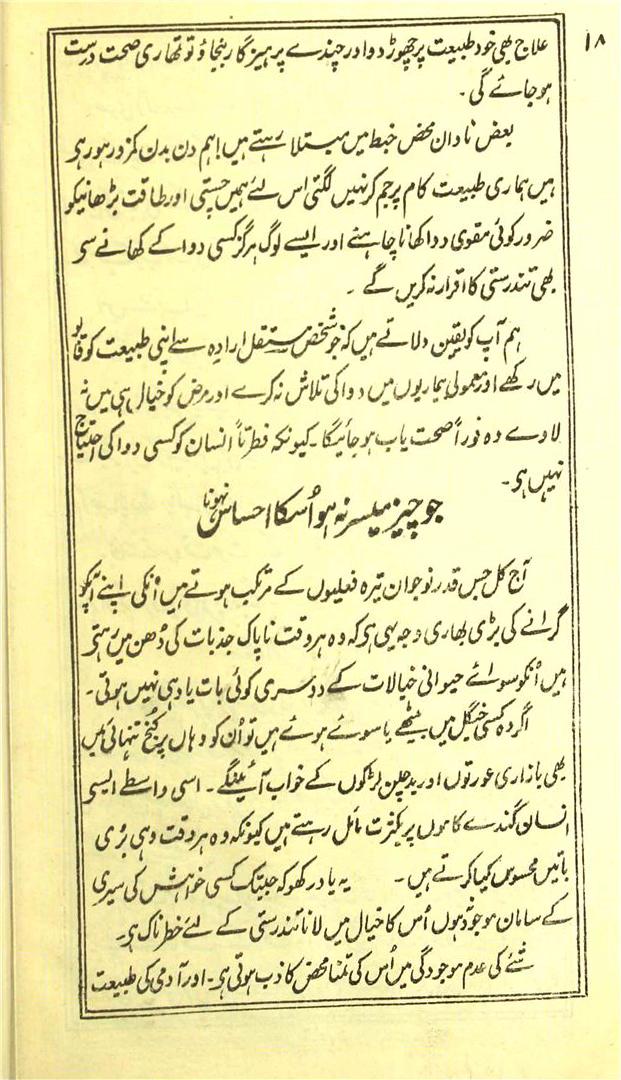 ۱۸
علاج بھی خود طبیعت پر چھوڑ دو اور چندے پرہیزگار بنجاؤ تو تمھاری صحت درست
ہو جائے گی۔
بعض نادان محض خبط میں مبتلا رہتے ہیں! ہم دن بدن کمزور ہو رہی
ہیں ہماری طبیعت کام پر جم کر نہیں لگتی اس لئے ہمیں چستی اور طاقت بڑھانیکو
ضرور کوئی مقوی دوا کھانا چاہئے اور ایسے لوگ ہرگز کسی دوا کے کھانے سی
بھی تندرستی کا اقرار نہ کریں گے۔
ہم آپ کو یقین دلاتے ہیں کہ جو شخص مستقل ارادہ سے اپنی طبیعت کو قابو
میں رکھے اور معمولی بیماریوں میں دوا کی تلاش نہ کرے اور مرض کو خیال ہی میں نہ
لاوے وہ فوراً صحت یاب ہو جائیگا۔ کیونکہ فطرتاً انسان کو کسی دوا کی احتیاج
نہیں ہی۔
جو چیز میسر نہ ہو اُسکا احساس نہونا
آج کل جس قدر نوجوان تیرہ فعلیوں کے مرتکب ہوتے ہیں اُنکی اپنے آپکو
گرانے کی بڑی بھاری وجہ یہی ہی کہ وہ ہر وقت ناپاک جذبات کی دُھن میں رہتی
ہیں اُنکو سوائے حیوانی خیالات کے دوسری کوئی بات یاد ہی نہیں ہوتی۔
اگر وہ کسی جنگل میں بیٹھے یا سوئے ہوئے ہیں تو اُن کو وہاں پر کُنج تنہائی میں
بھی بازاری عورتوں اور بدچلن لڑکوں کے خواب آئینگے۔ اسی واسطے ایسی
انسان گندے کاموں پر بکثرت مائل رہتے ہیں کیونکہ وہ ہر وقت وہی بُری
باتیں محسوس کیا کرتے ہیں۔ یہ یاد رکھو کہ جبتک کسی خواہش کی سیری
کے سامان موجود نہوں اُس کا خیال میں لانا تندرستی کے لئے خطرناک ہی۔
شئے کی عدم موجودگی میں اُس کی تمنّا محض کاذب ہوتی ہی۔ اور آدمی کی طبیعت